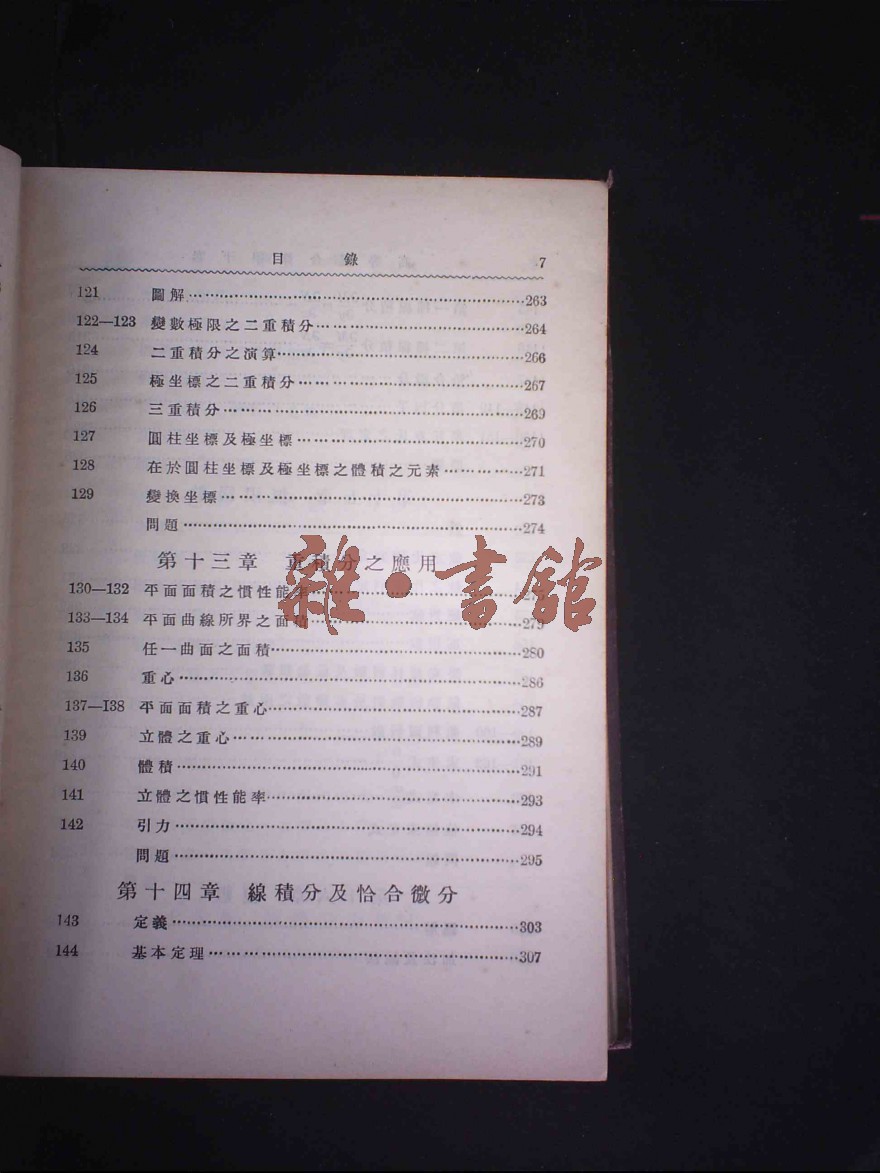 目 錄 7
121 圖解……263
122—123 變數極限之二重積分……264
124 二重積分之演算……266
125 極坐標之二重積分……267
126 三重積分……269
127 圓柱坐標及極坐標……270
128 在於圓柱坐標及極坐標之體積之元素……271
129 變換坐標……273
問題……274
第十三章 重積分之應用
130—132 平面面積之慣性能率……
133—134 平面曲線所界之面積……279
135 任一曲面之面積……280
136 重心……286
137—138 平面面積之重心……287
139 立體之重心……289
140 體積……291
141 立體之慣性能率……293
142 引力……294
問題……295
第十四章 線積分及恰合微分
143 定義……303
144 基本定理……307
雜·書館